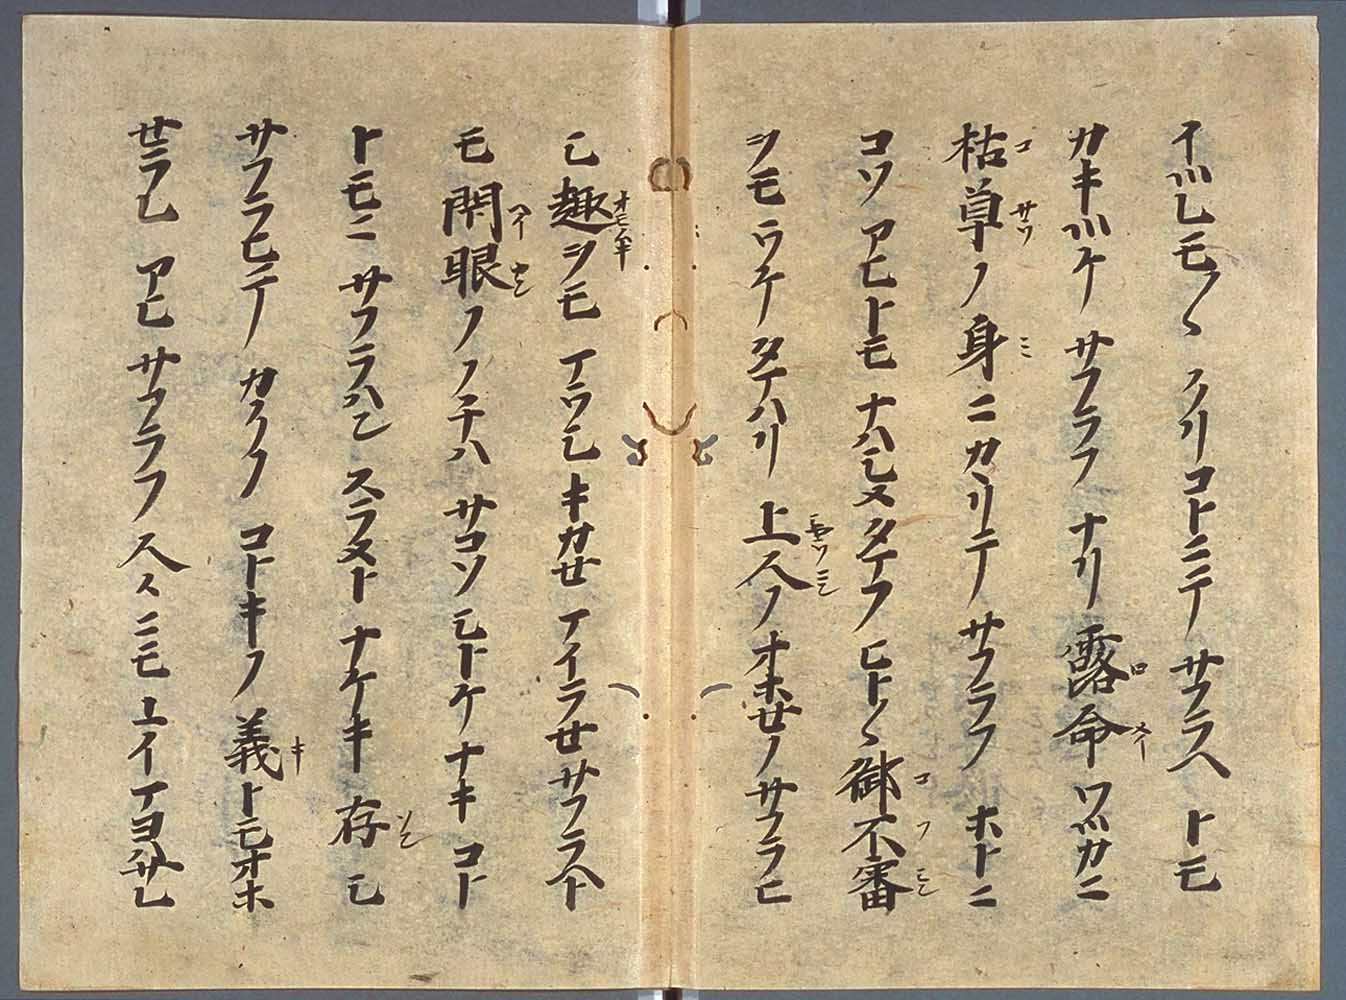 イツレモ〱クリコトニテサフラヘトモ
カキツケサフラフナリ露命ワツカニ
枯草ノ身ニカヽリテサフラフホトニ
コソアヒトモナハシメタマフヒト〱御不審
ヲモウケタマハリ上人ノオホセノサフラヒ
シ趣ヲモマウシキカセマイラセサフラヘト
モ閇眼ノノチハサコソシトケナキコト
トモニサフラハンスラメトナケキ存シ
サフラヒテカクノコトキノ義トモオホ
セラレアヒサフラフ人々ニモイヒマヨハサレ